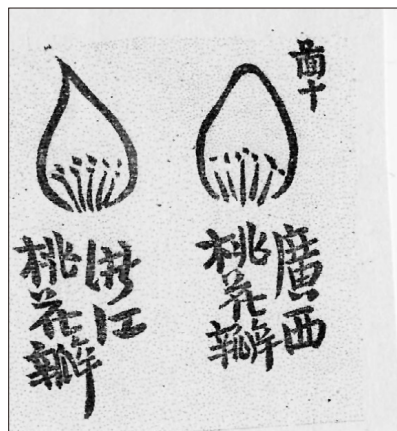 啚十
廣西
桃花瓣
浙江
桃花瓣